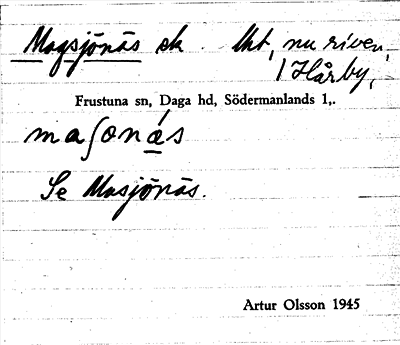 Magsjönäs ek. lht, nu riven,
i Hårby,
Frustuna sn, Daga hd, Södermanlands l,.
maʃonás
Se Masjönäs.
Artur Olsson 1945